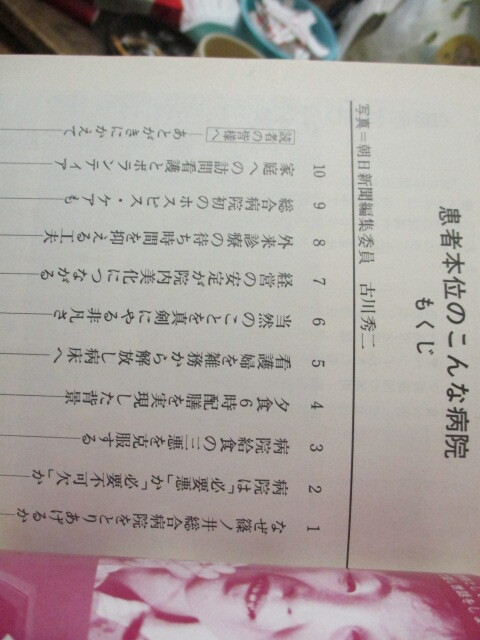 患者本位のこんな病院
もくじ
写真＝朝日新聞編集委員　古川秀二
1　なぜ篠ノ井総合病院をとりあげるか
2　病院は「必要悪」か「必要不可欠」か
3　病院給食の三悪を克服する
4　夕食6時配膳を実現した背景
5　看護婦を雑務から解放し病床へ
6　当然のことを真剣にやる非凡さ
7　経営の安定が院内美化につながる
8　外来診療の待ち時間を抑える工夫
9　総合病院初のホスピス・ケアも
10　家庭への訪問看護とボランティア
読者の皆様へ　あとがきにかえて